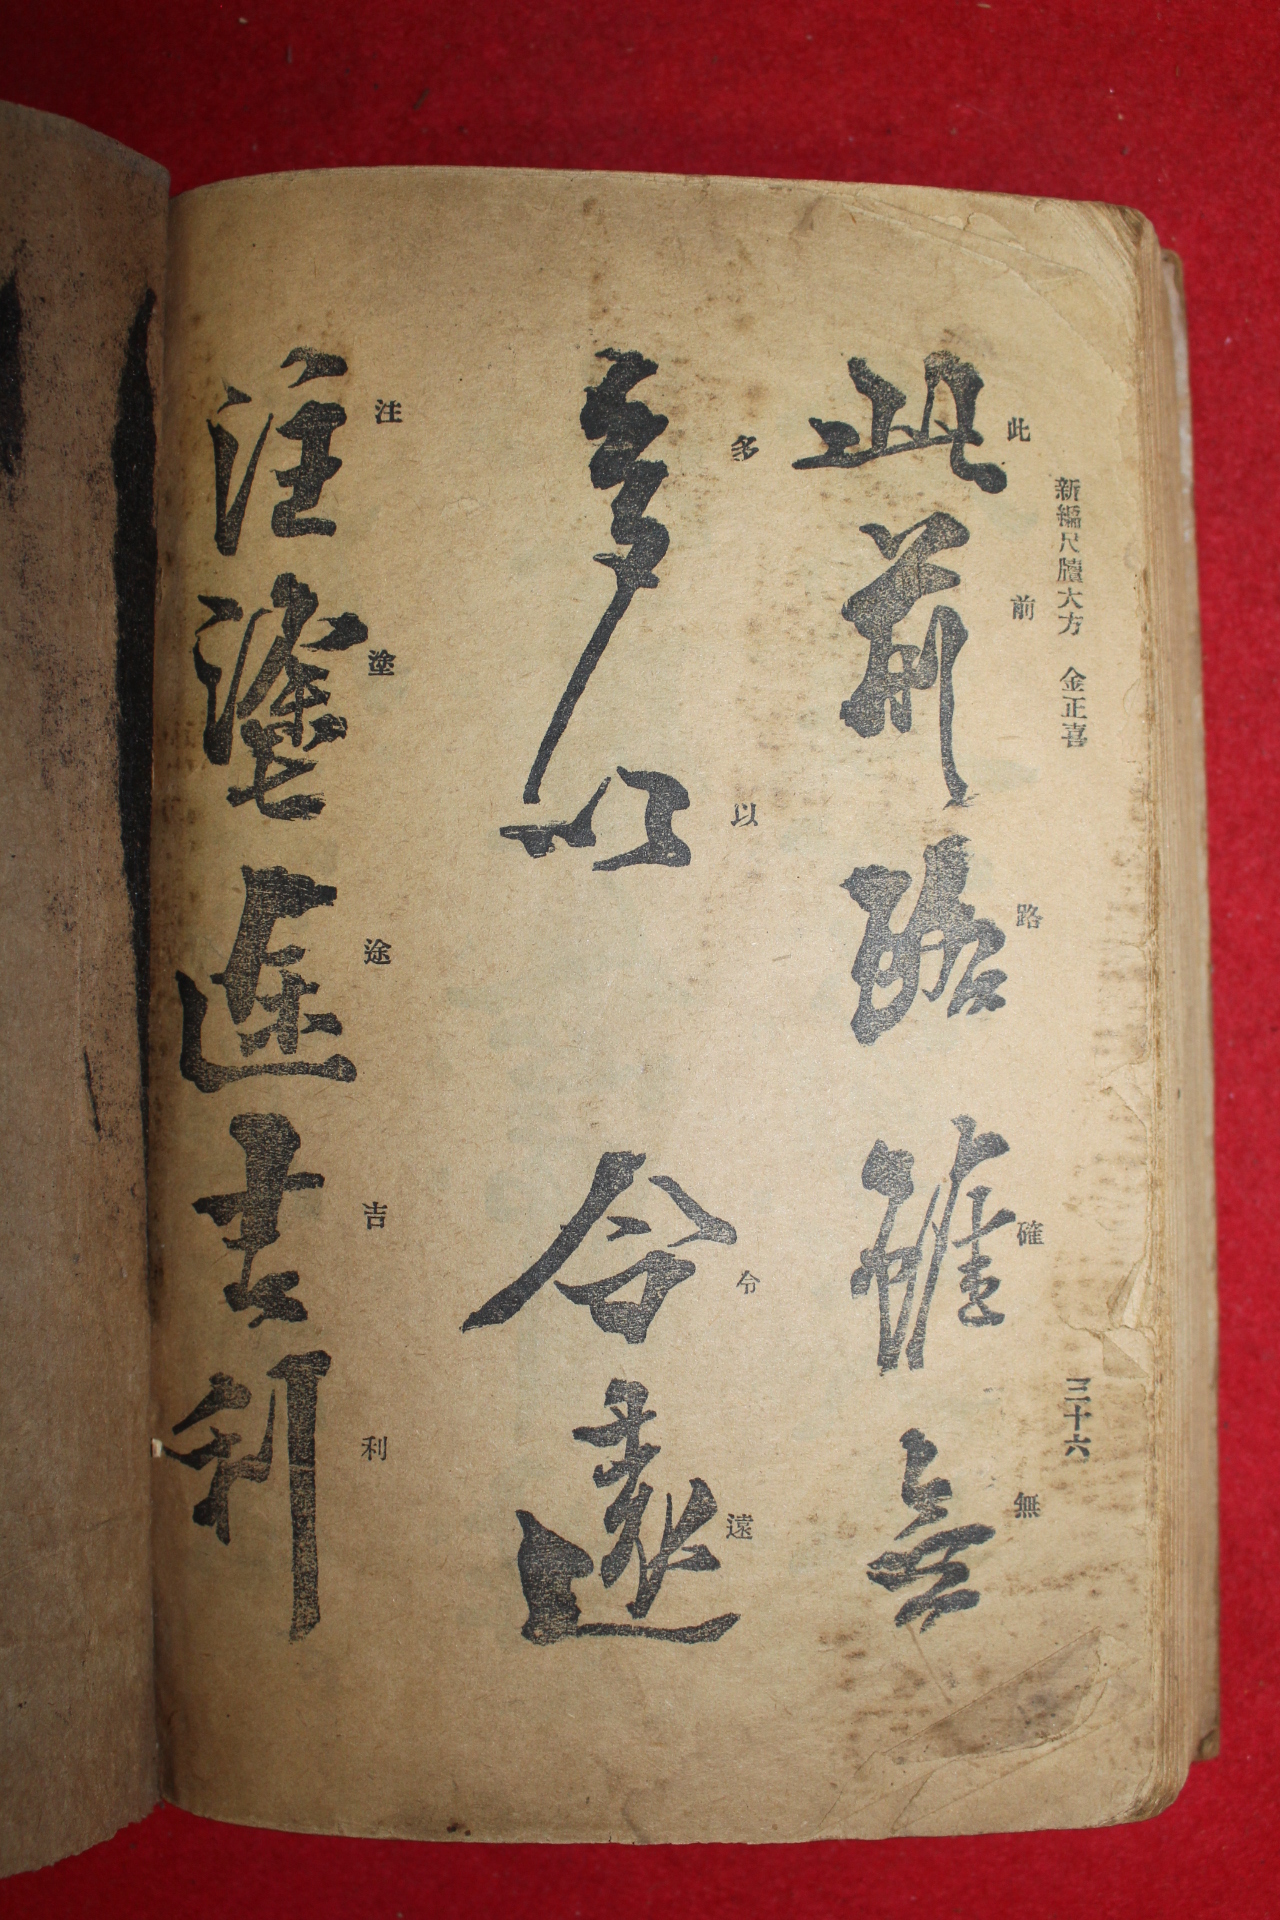 新編尺牘大方 金正喜 三十六
此前路確無
此前路確無
多以令遠
多以令遠
注塗途吉利
注塗途吉利